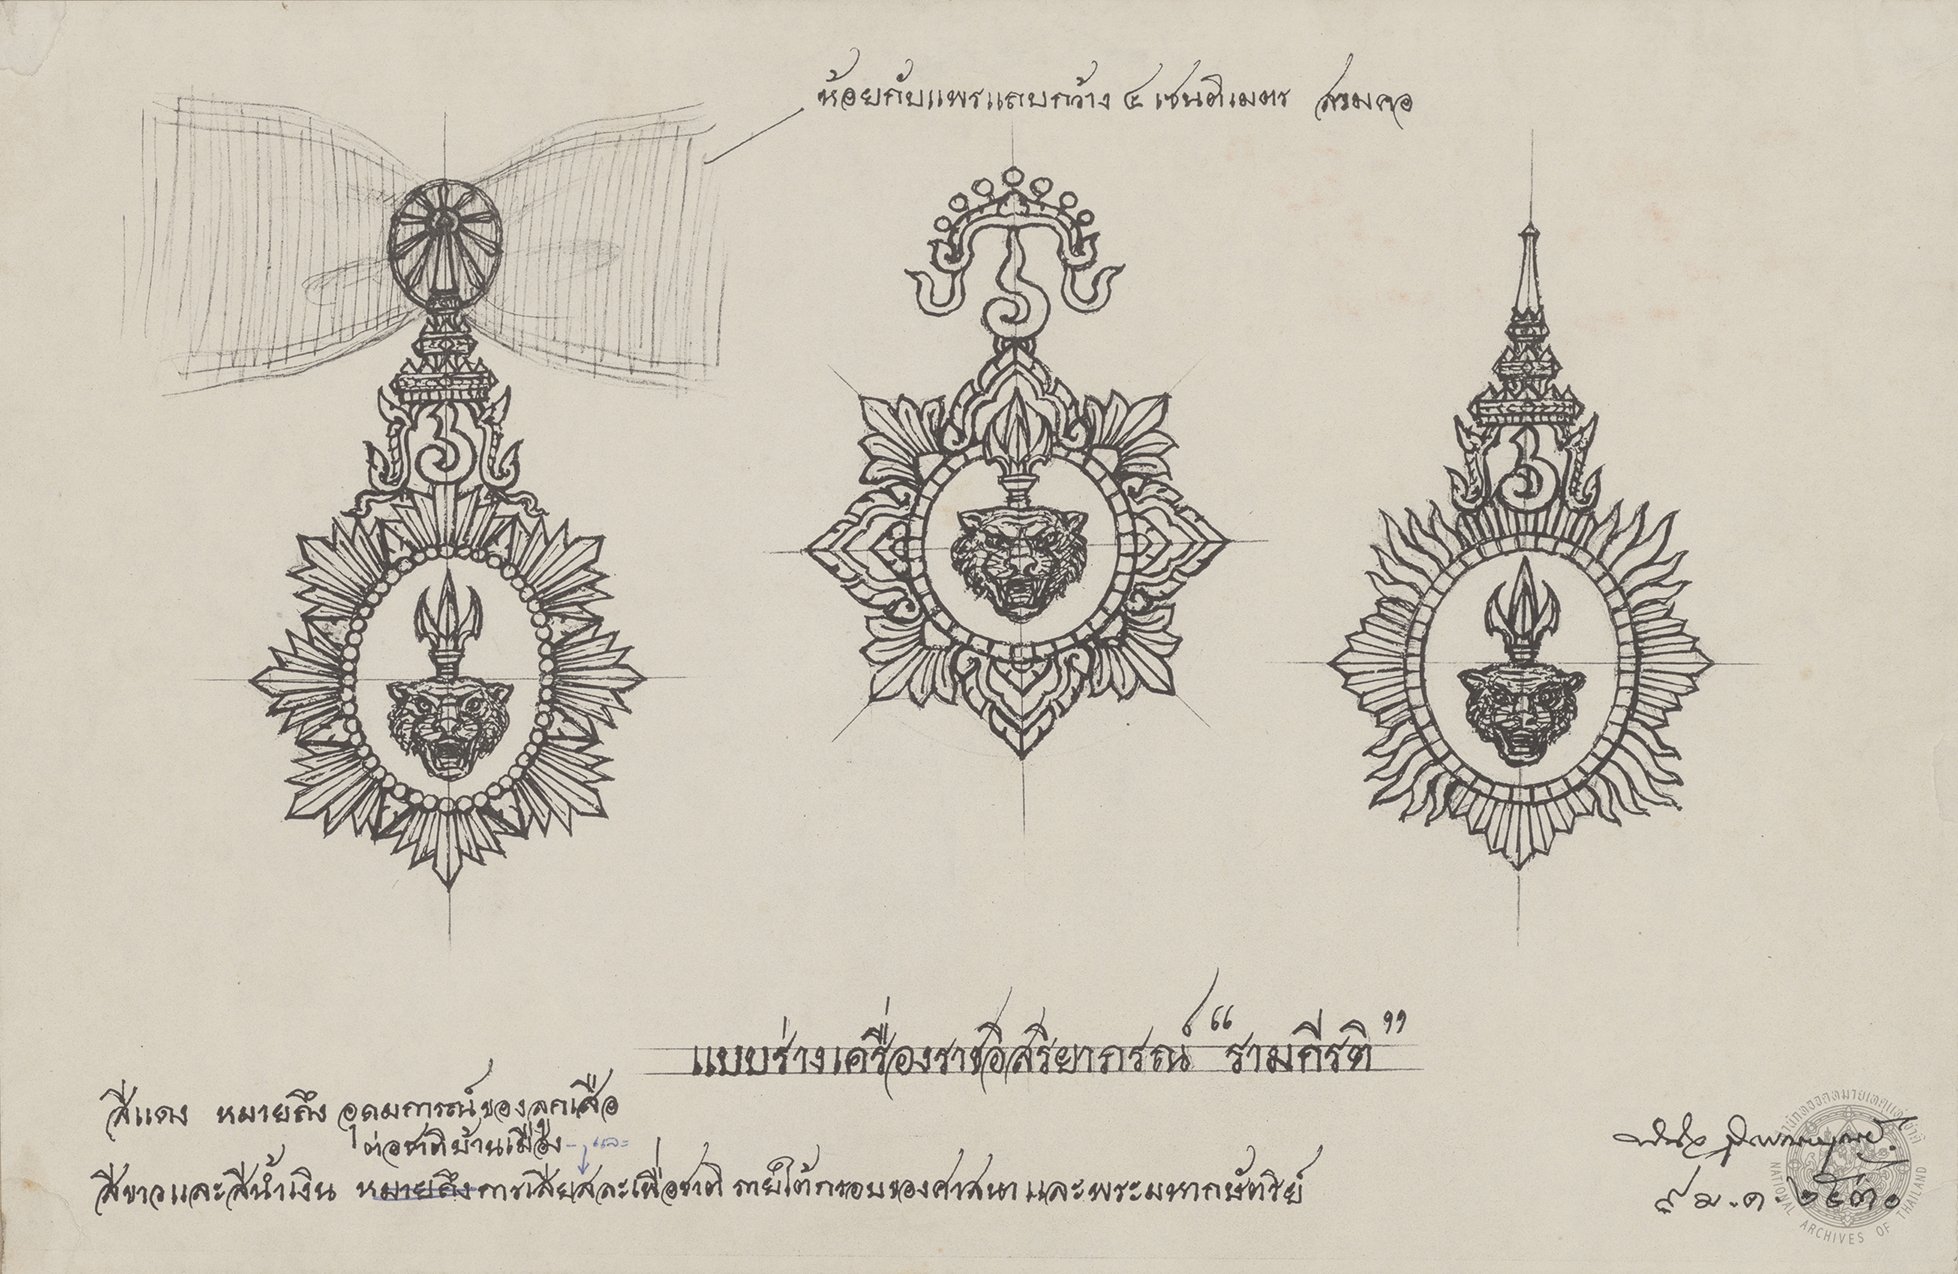 ห้อยกับแพรแถบกว้าง ๔ เซนติเมตร สวมคอ
แบบร่างเครื่องราชอิสริยาภรณ์ “รามคีรติ”
สีแดง หมายถึง อุดมการณ์ของลูกเสือ
ต่อชาติบ้านเมือง และ
สีขาวและสีน้ำเงิน หมายถึงการเสียสละเพื่อชาติ ภายใต้กรอบของศาสนา และพระมหากษัตริย์
๙ ม.ค. ๒๕๓๐
NATIONAL ARCHIVES OF THAILAND